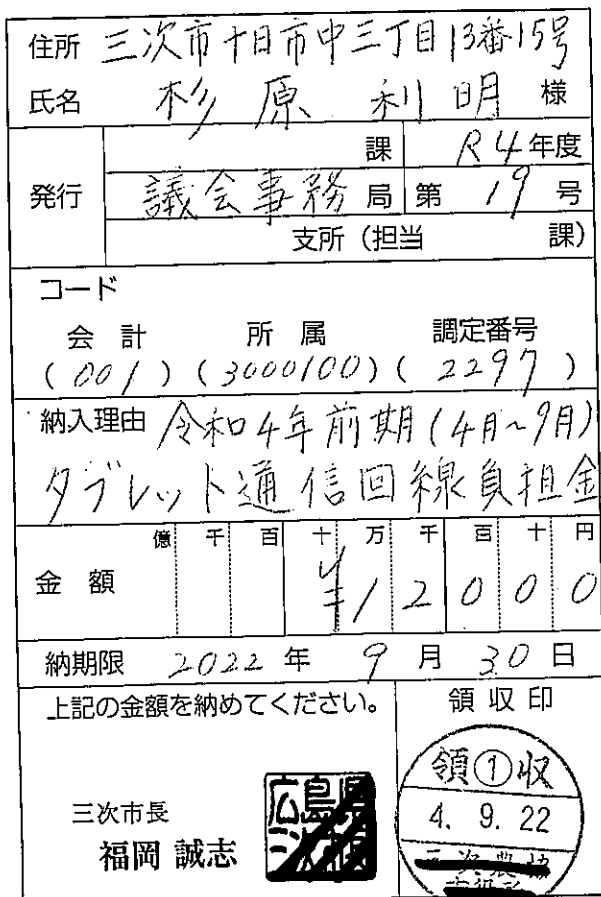 住所 三次市十日市中三丁目13番15号
氏名 杉原利明 様
発行 課 R4年度
議会事務局 第19号
支所(担当 課)
コード
会計 所属 調定番号
(001) (3000100) (2297)
納入理由 令和4年前期(4月~9月)
タブレット通信回線負担金
億 千 百 十 万 千 百 十 円
金額 ¥12000
納期限 2022年9月30日
上記の金額を納めてください。
領収印
領①収
4. 9. 22
三次市長
福岡 誠志